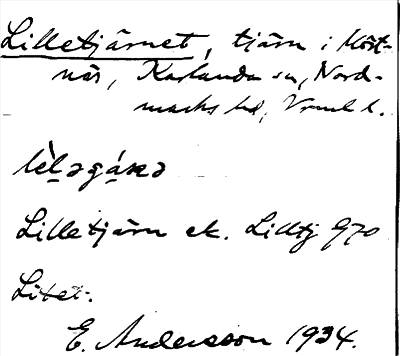 Lilletjärnet, tjärn i Möst-
när, Karlanda sn, Nord-
marks hd, Vrml l.
Lilletjärn ek. Lilltj 970
Litet.
E. Andersson 1934.